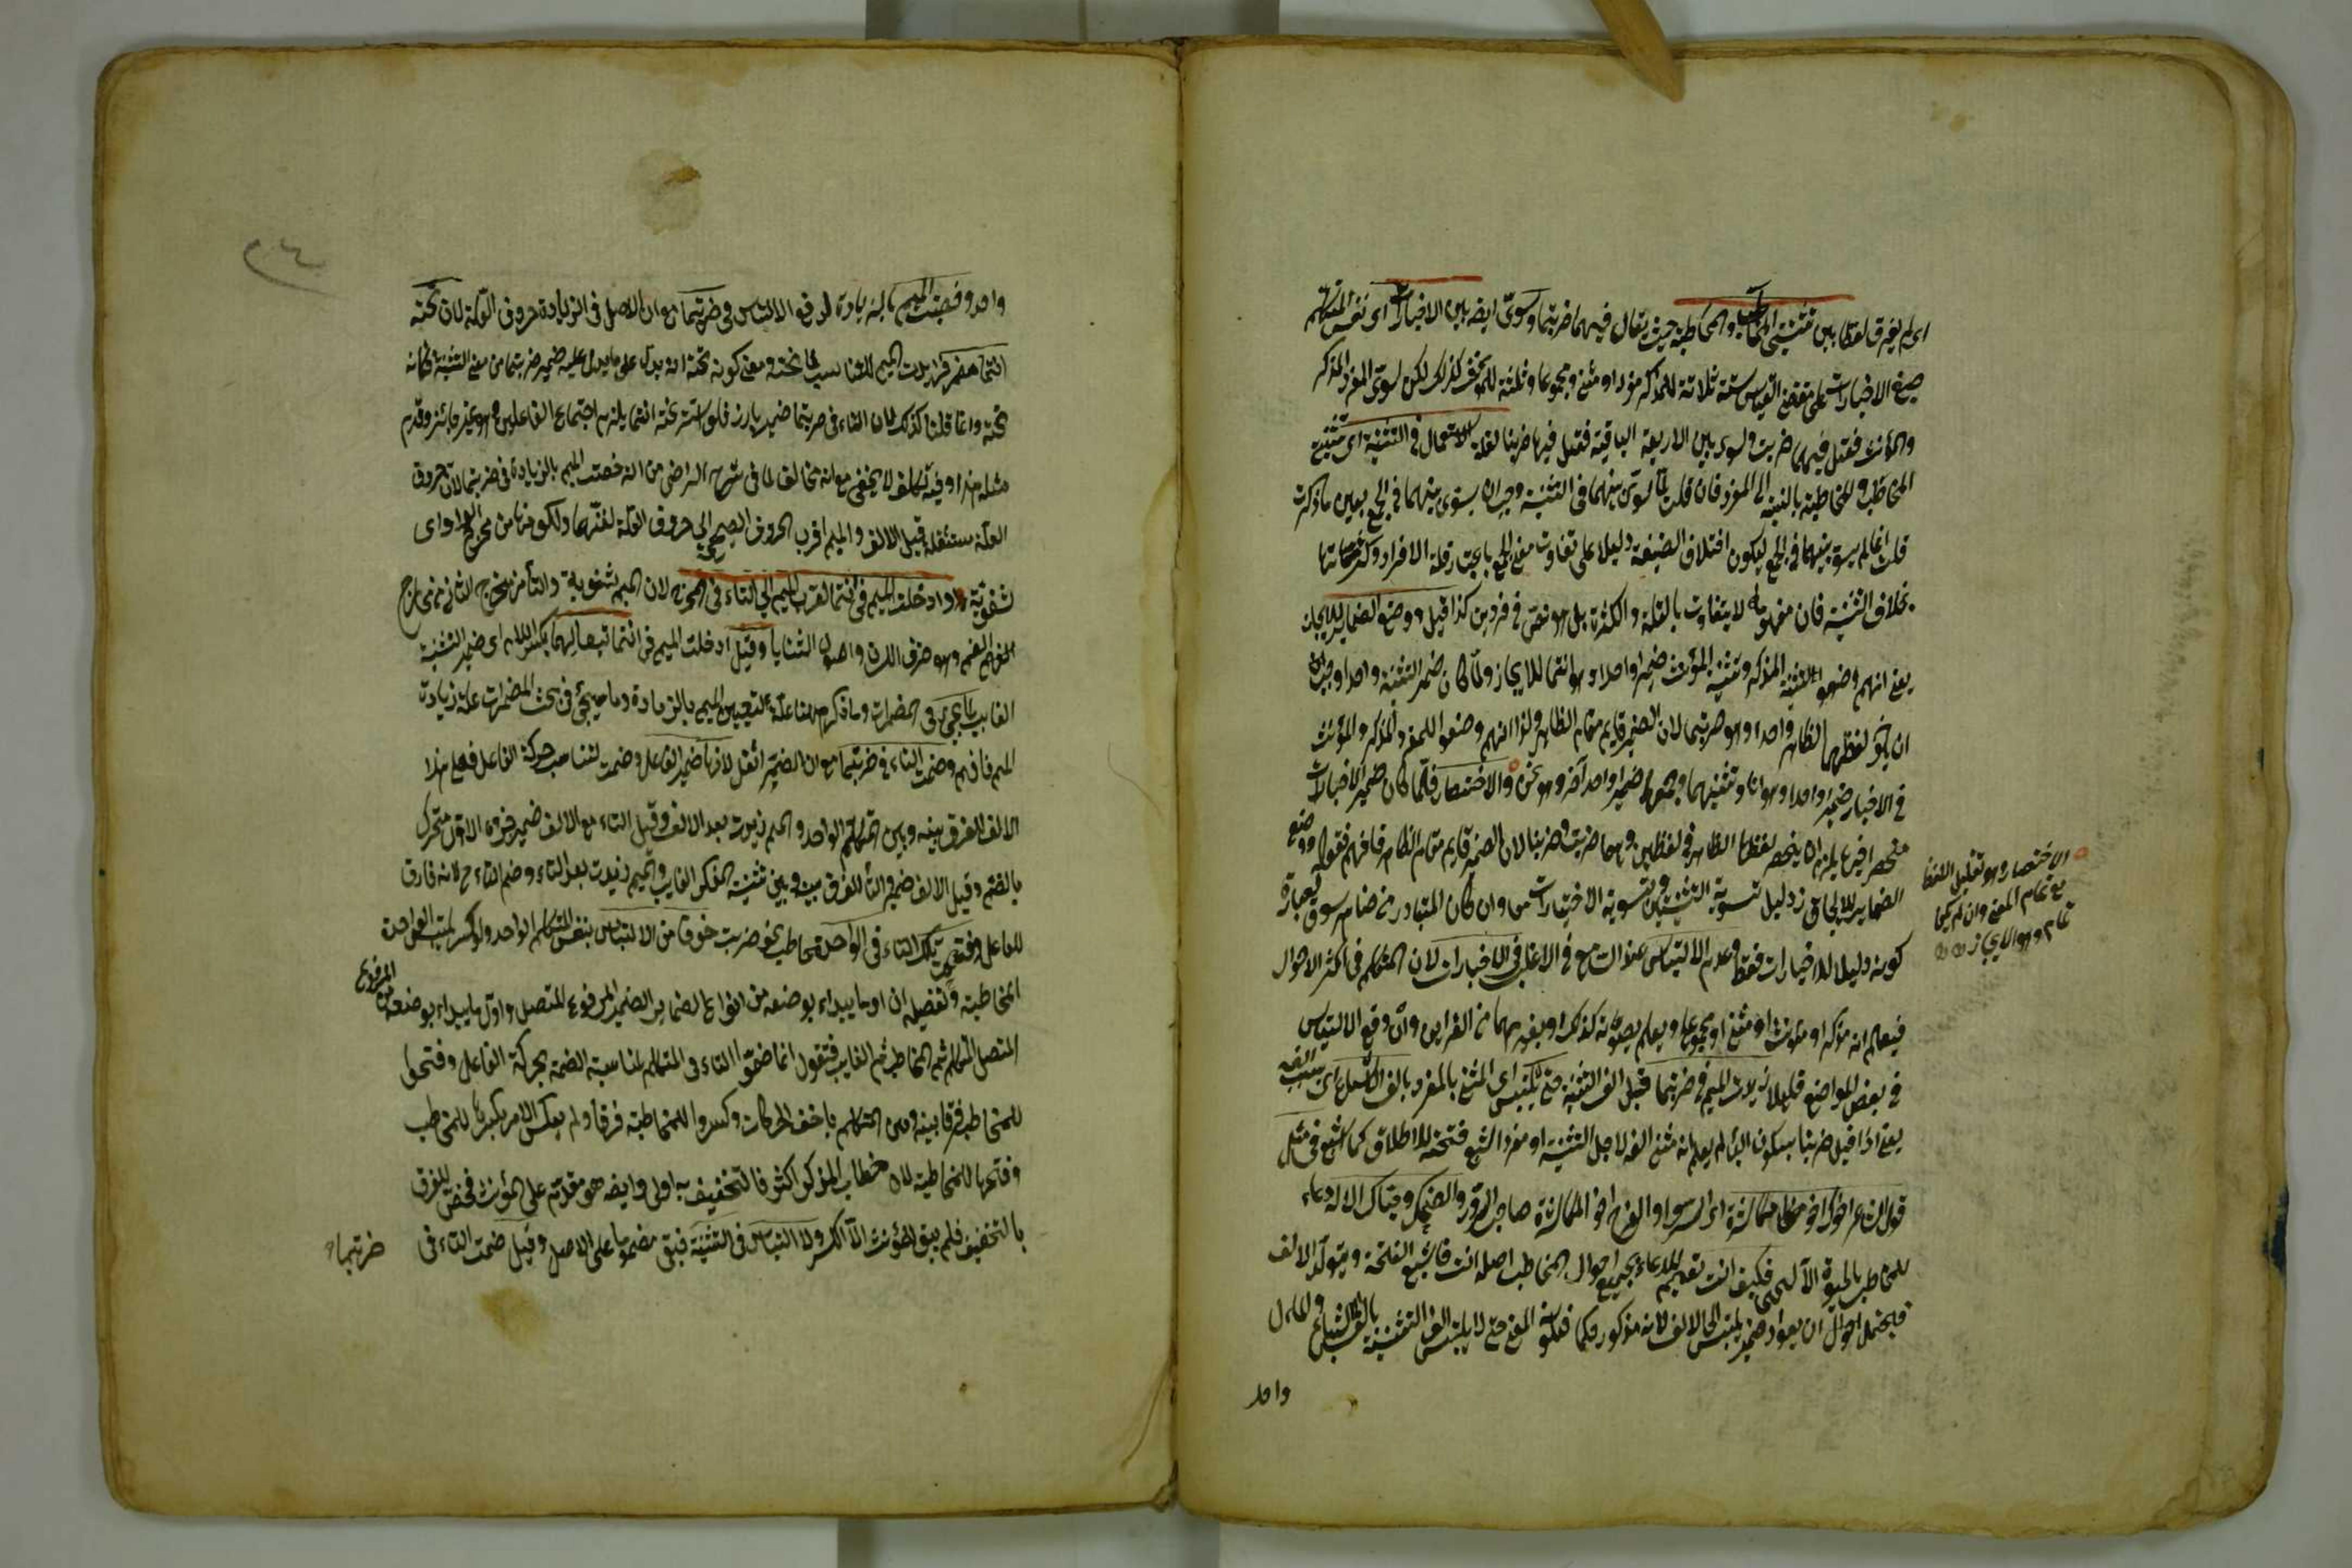 اى لم يفرق لفظا بين تثنيتى المخاطب والمخاطبة حيث يقال فيهما ضربتما وسوى ايضا بين الاخبارات اى نفس المتكلم
صيغ الاخبارات على مقتضى القياس ستة ثلاثة للمذكر مفردا او مثنى ومجموعا وثلثة للمؤنث كذلك لكن سوى المفرد المذكر
والمؤنث فقيل فيهما ضربت وسوى بين الاربعة الباقية فقيل فيها ضربنا لقلة الاستعمال فى التثنية اى تثنية
المخاطب والمخاطبة بالنسبة الى المفرد فان قلت لما سوى بينهما فى التثنية وجب ان يسوى بينهما فى الجمع بعين ما ذكرت
قلت انما لم يسو بينهما فى الجمع ليكون اختلاف الصيغة دليلا على تفاوت معنى الجمع باعتبار قلة الافراد وكثرتها
بخلاف التثنية فان مفهومه لا يتفاوت بالقلة والكثرة بل هو نص فى فردين كذا قيل ووضع الضماير للايجاز
يعنى انهم وضعوا لتثنية المذكر وتثنية المؤنث ضميرا واحدا وهو انتما للايجاز ولما كان ضمير التثنية واحدا وجب
ان يكون لفظهما الظاهر واحدا وهو ضربتما لان الضمير قايم مقام الظاهر ولذا انهم وضعوا للمفرد المذكر والمؤنث
فى الاخبار ضميرا واحدا وهو انا وتثنيتهما وجمعهما ضميرا واحدا آخر وهو نحن والاختصار فلما كان ضمير الاخبارات
منحصرا فيه يلزم ان ينحصر لفظها الظاهر فى لفظين وهما ضربت وضربنا لان الضمير قايم مقام الظاهر فافهم فقوله ووضع
الضماير للايجاز دليل تسوية التثنيتين وتسوية الاخبارات معا وان كان المتبادر من ضام سوق العبارة
كونه دليلا للاخبارات فقط وعدم الالتباس عند السامع فى الاغلب فى الاخبارات لان المتكلم فى اكثر الاحوال
فيعلم انه مذكر او مؤنث او مثنى او مجموع او يعلم بصوته كذلك او بغيرهما من القراين وان وقع الالتباس
فى بعض المواضع قليلا زيدت الميم فى ضربتما قبل الف التثنية حتى لا يلتبس اى المثنى بالمفرد بالف الاشباع اى بسبب الفه
يعنى اذا قيل ضربتا بسكون الباء لم يعلم انه مثنى الفه لاجل التثنية او مفرد اشبع فتحته للاطلاق كما اشبع فى مثل
قول الشاعر اخوك اخو مكاشرة اى السرور والفرح اخو المكاشرة صاحب السرور والضحك وحياك الاله دعاء
للمخاطب بالحيوة الآلهى فكيف انت تعميم للدعاء بجميع احوال المخاطب اصله انت فاشبع الفتحة وتولد الالف
فيحتمل احوال ان يعود ضمير يلتبس الى الالف لانه مذكور حكما فيكون المعنى حتى لا يلتبس الف التثنية بالف الاشباع والمآل
واحد
الاختصار وهو تقليل اللفظ
مع تمام المعنى وان لم يكن
تمام وهو الايجاز
٢٤
واحد وخصت الميم بالزيادة لدفع الالتباس فى ضربتما مع ان الاصل فى الزيادة حروف العلة لان تحته
انتما مضمر فزيدت الميم للتناسب لما تحته ومعنى كونه تحته انه يدل على ما يدل عليه ضمير ضربتما من معنى التثنية فكانه
تحته وانما قلنا كذلك لان التاء فى ضربتما ضمير بارز فلو استتر تحته انتما يلزم اجتماع الفاعلين وهو غير جائز وقدم
مثله مرارا وفيه تكلف لا يخفى مع انه مخالف لما فى شرح الرضى من انه خصت الميم بالزيادة فى ضربتما لان حروف
العلة مستثقلة قبل الالف والميم اقرب الحروف الصحيحة الى حروف العلة لغنتها ولكونها من مخرج الواو اى
شفوية وادخلت الميم فى انتما لقرب الميم الى التاء فى المخرج لان الميم شفوية والتاء من مخرج الثانى من مخارج
الفم وهو طرف اللسان واصول الثنايا وقيل ادخلت الميم فى انتما تبعا لهما بكسر اللام اى ضمير التثنية
الغايب لما يجئ فى المضمرات وما ذكر ههنا علة لتعيين الميم بالزيادة وما سيجئ فى بحث المضمرات علة زيادة
الميم فافهم وضمت التاء فى ضربتما مع ان الضمير اثقل لانها ضمير الفاعل وضمت لتناسب حركة الفاعل فعلى هذا
الالف للفرق بينه وبين المتكلم الواحد والميم زيدت بعد الالف وقيل التاء مع الالف ضمير وحده الاول متحرك
بالضم وقيل الالف ضمير والتاء للفرق بينه وبين تثنية المذكر الغايب والميم زيدت بعد التاء وضم التاء ح لانه فارق
للفاعل وفتحت تلك التاء فى الواحد مخاطب نحو ضربت خوفا من الالتباس بنفس المتكلم الواحد ولو كسر يلتبس الواحدة
المخاطبة وتفصيله ان اول ما يبداء بوضعه من انواع الضماير الضمير المرفوع المتصل واول ما يبداء بوضعه من المرفوع
المتصل المتكلم ثم المخاطب ثم الغايب فتقول انما ضموا التاء فى المتكلم لمناسبة الضمة بحركة الفاعل وفتحوا
للمخاطب فرقا بينه وبين المتكلم باخف الحركات وكسروا للمخاطبة فرقا ولم يعكس الامر بكسرها للمخاطب
وفتحها للمخاطبة لان خطاب المذكر اكثر فالتخفيف به اولى وايضا هو مقدم على المؤنث فخص للفرق
بالتخفيف فلم يبق للمؤنث الا الكسر ولا التباس فى التثنية فبقى مضموما على الاصل وقيل ضمت التاء فى
ضربتما